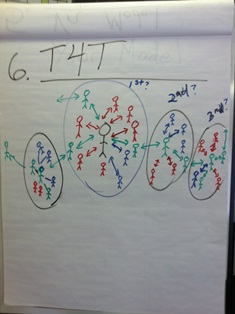 6. T4T
1st?
2nd?
3rd?